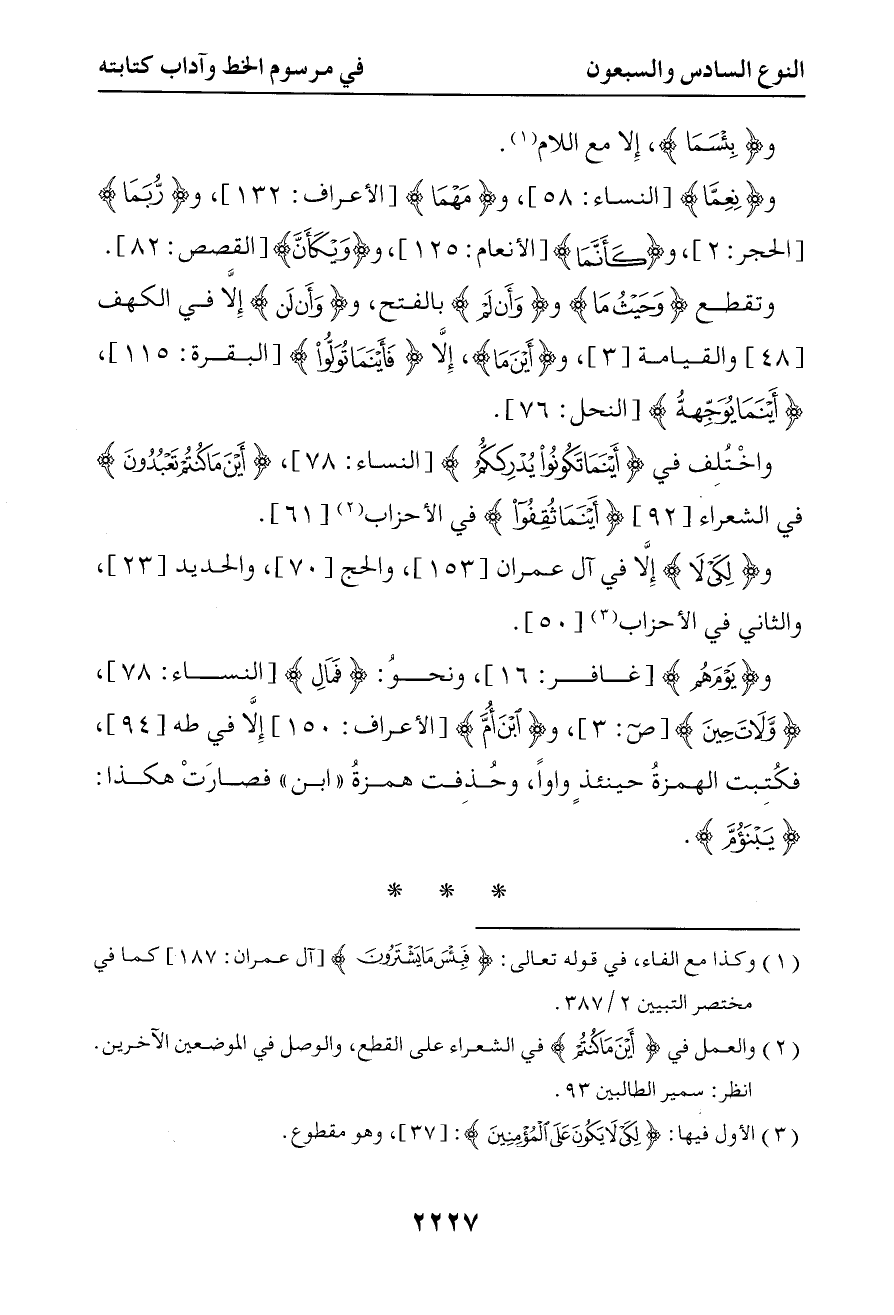 النوع السادس والسبعون في مرسوم الخط وآداب كتابته
و﴿ بِئْسَمَا ﴾، إلا مع اللام(١).
و﴿نِعِمَّا﴾ [النساء: ٥٨]، و﴿مَهْمَا﴾ [الأعراف: ١٣٢]، و﴿رُّبَمَا﴾
[الحجر: ٢]، و﴿كَأَنَّمَا﴾ [الأنعام: ١٢٥]، و﴿وَيْكَأَنَّ﴾ [القصص: ٨٢].
وتقطع ﴿وَحَيْثُ مَا﴾ و﴿وَأَن لَّمْ﴾ بالفتح، و﴿وَأَن لَن﴾ إلَّا في الكهف
[٤٨] والقيامة [٣]، و﴿أَيْنَ مَا﴾، إلَّا ﴿فَأَيْنَمَا تُوَلُّواْ﴾ [البقرة: ١١٥]،
﴿أَيْنَمَا يُوَجِّههُّ﴾ [النحل: ٧٦].
واخْتُلف في ﴿أَيْنَمَا تَكُونُواْ يُدْرِككُّمُ﴾ [النساء: ٧٨]، ﴿أَيْنَ مَا كُنتُمْ تَعْبُدُونَ﴾
في الشعراء [٩٢] ﴿أَيْنَمَا ثُقِفُوٓاْ﴾ في الأحزاب(٢) [٦١].
و﴿لِكَىْ لَا﴾ إلَّا في آل عمران [١٥٣]، والحج [٧٠]، والحديد [٢٣]،
والثاني في الأحزاب(٣) [٥٠].
و﴿يَوْمَ هُم﴾ [غافر: ١٦]، ونحوُ: ﴿فَمَالِ﴾ [النساء: ٧٨]،
﴿وَّلَاتَ حِينَ﴾ [صٓ: ٣]، و﴿ٱبْنَ أُمَّ﴾ [الأعراف: ١٥٠] إلَّا في طه [٩٤]،
فكُتِبت الهمزةُ حينئذٍ واواً، وحُذِفت همزةُ «ابن» فصارَتْ هكذا:
﴿يَبْنَؤُمَّ﴾.
* * *
(١) وكذا مع الفاء، في قوله تعالى: ﴿فَبِئْسَ مَا يَشْتَرُونَ﴾ [آل عمران: ١٨٧] كما في
مختصر التبيين ٢/ ٣٨٧.
(٢) والعمل في ﴿أَيْنَ مَا كُنتُمْ﴾ في الشعراء على القطع، والوصل في الموضعين الآخرين.
انظر: سمير الطالبين ٩٣.
(٣) الأول فيها: ﴿لِكَىْ لَا يَكُونَ عَلَى ٱلْمُؤْمِنِينَ﴾: [٣٧]، وهو مقطوع.
٢٢٢٧